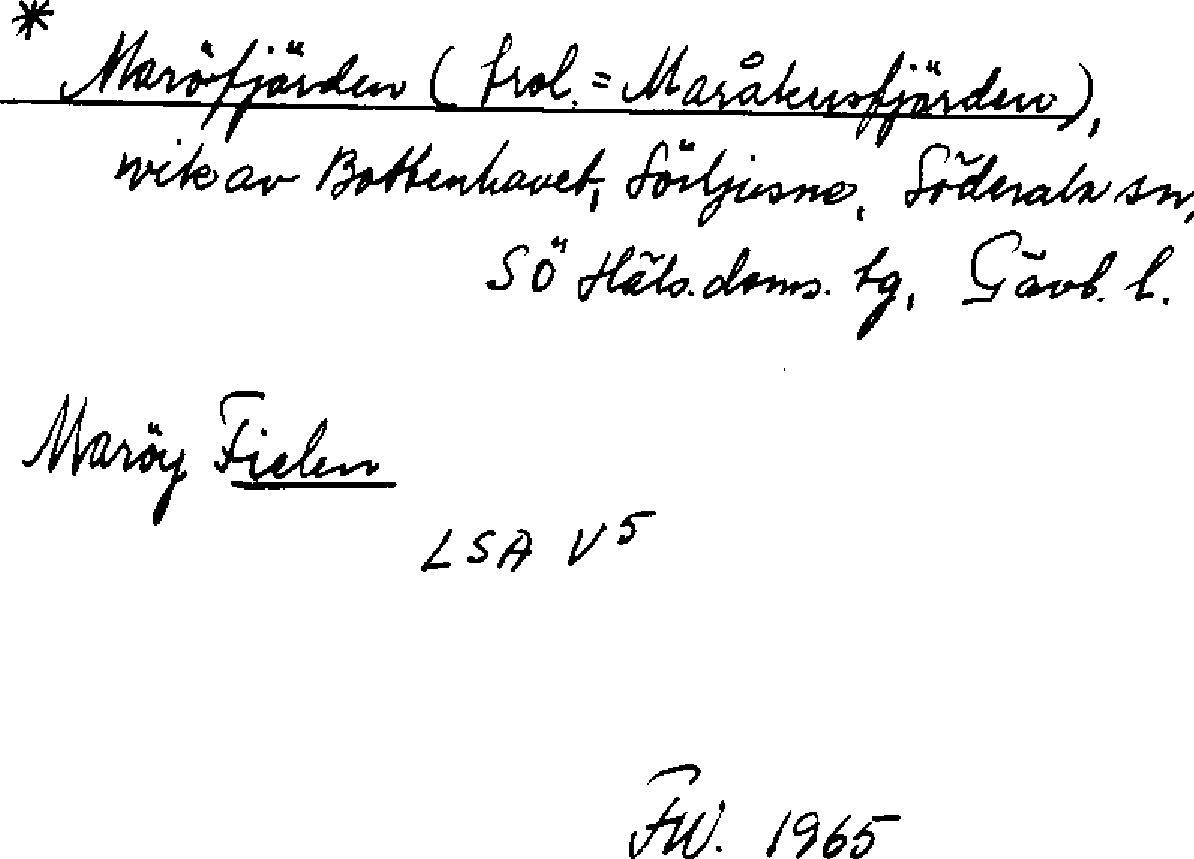 *
Maröfjärden (trol. = Maråkersfjärden),
vik av Bottenhavet, Sörljusne, Söderala sn,
SÖ Häls. doms. tg, Gävb. l.
Maröy Fielen
LSA V5
FW. 1965